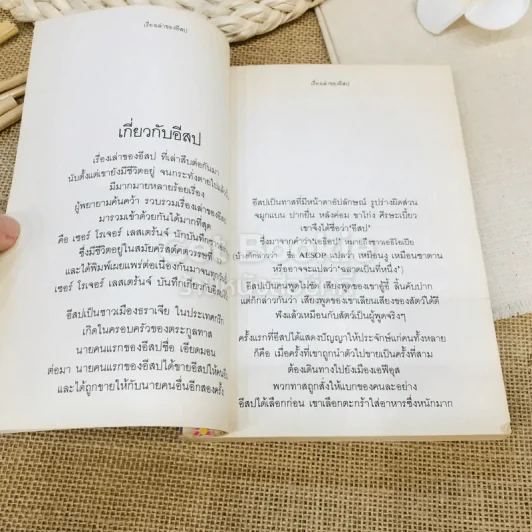 เรื่องเล่าของอีสป
เกี่ยวกับอีสป
เรื่องเล่าของอีสป ที่เล่าสืบต่อกันมา
นับตั้งแต่เขายังมีชีวิตอยู่ จนกระทั่งตายไปแล้ว
มีมากมายหลายร้อยเรื่อง
ผู้พยายามค้นคว้า รวบรวมเรื่องเล่าของอีสป
มารวมเข้าด้วยกันได้มากที่สุด
คือ เซอร์ โรเจอร์ เลสเตร้นจ์ นักบันทึก
ซึ่งมีชีวิตอยู่ในสมัยคริสต์ศตวรรษที่
และได้พิมพ์เผยแพร่ต่อเนื่องกันมาจนทุกวันนี้
เซอร์ โรเจอร์ เลสเตร้นจ์ บันทึกเกี่ยวกับอีสป
อีสปเป็นชาวเมืองธราเจีย ในประเทศกรีก
เกิดในครอบครัวของตระกูลทาส
นายคนแรกของอีสปชื่อ เอียดมอน
ต่อมา นายคนแรกของอีสปได้ขายอีสปให้คนอื่น
และได้ถูกขายให้กับนายคนอื่นอีกสองครั้ง
เรื่องเล่าของอีสป
อีสปเป็นทาสที่มีหน้าตาอัปลักษณ์ รูปร่างผิดส่วน
จมูกแบน ปากยื่น หลังค่อม ขาโก่ง ศีรษะเบี้ยว
เขาจึงได้ชื่อว่า"อีสป"
ซึ่งมาจากคำว่า"เอธิอป" หมายถึงชาวเอธิโอเปีย
(บันทึกกล่าวว่า ชื่อ AESOP แปลว่า เหมือนงู เหมือนขาตาน
หรืออาจจะแปลว่า"ฉลาดเป็นที่หนึ่ง")
อีสปเป็นคนพูดไม่ชัด เสียงพูดของเขาอู้อี้ ลิ้นคับปาก
แต่ก็กล่าวกันว่า เสียงพูดของเขาเลียนเสียงของสัตว์ได้ดี
ฟังแล้วเหมือนกับสัตว์เป็นผู้พูดจริงๆ
ครั้งแรกที่อีสปได้แสดงปัญญาให้ประจักษ์แก่คนทั้งหลาย
ก็คือ เมื่อครั้งที่เขาถูกนำตัวไปขายเป็นครั้งที่สาม
ต้องเดินทางไปยังเมืองเอฟิอุส
พวกทาสถูกสั่งให้แบกของคนละอย่าง
อีสปได้เลือกก่อน เขาเลือกตะกร้าใส่อาหารซึ่งหนักมาก